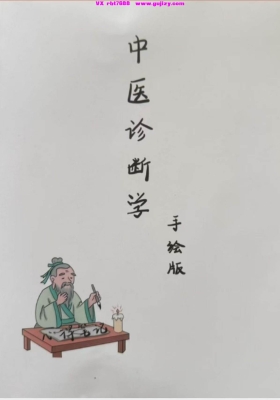 VX r6t7888 www.gojlxy.com
中医诊断学
手绘版